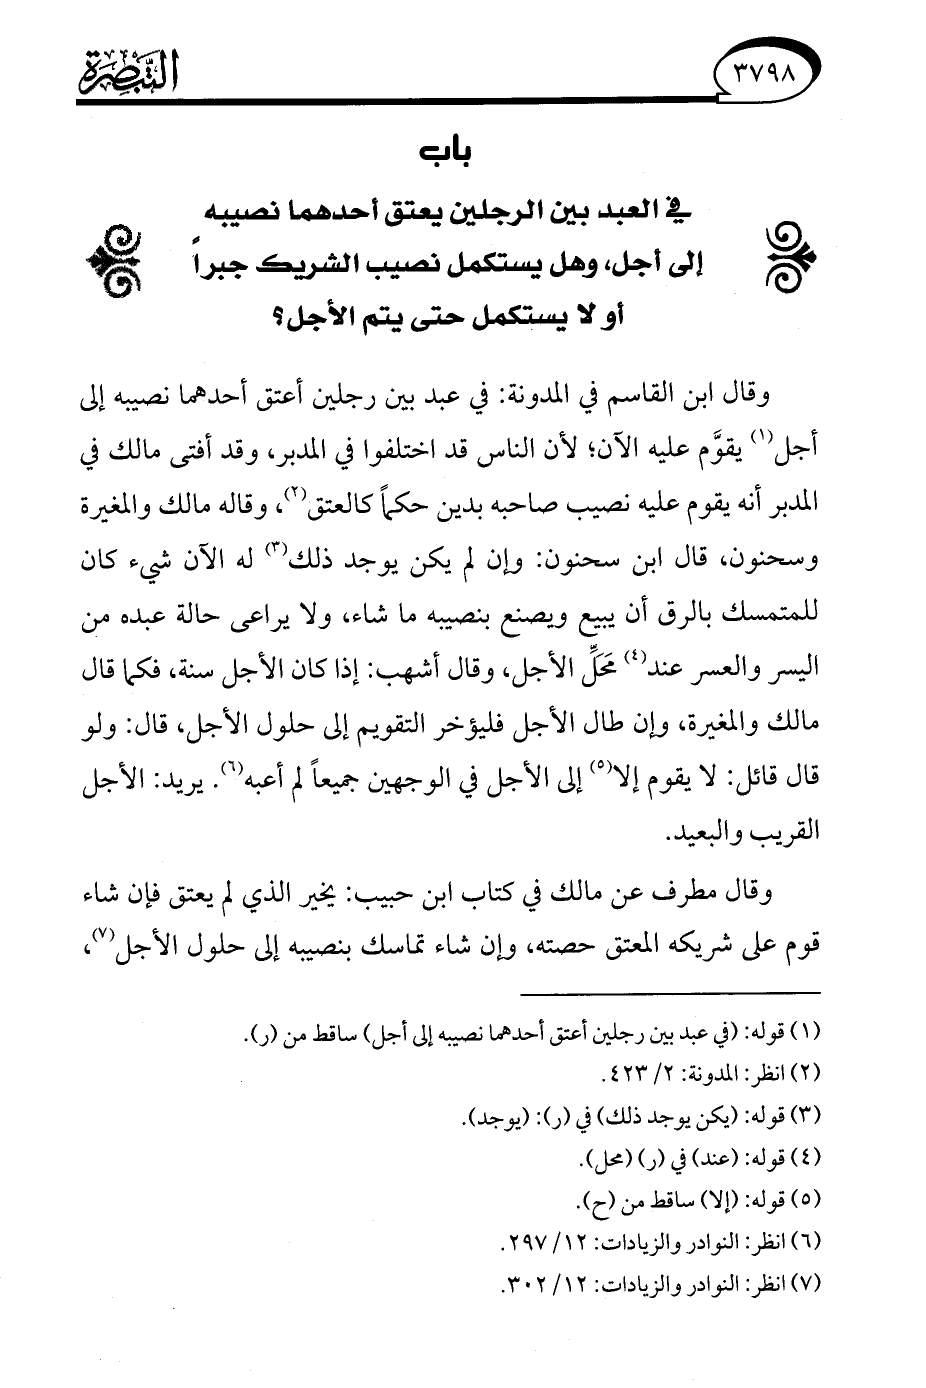 ٣٧٩٨
التبصرة
باب
في العبد بين الرجلين يعتق أحدهما نصيبه
إلى أجل، وهل يستكمل نصيب الشريك جبراً
أو لا يستكمل حتى يتم الأجل؟
وقال ابن القاسم في المدونة: في عبد بين رجلين أعتق أحدهما نصيبه إلى
أجل(١) يقوَّم عليه الآن؛ لأن الناس قد اختلفوا في المدبر، وقد أفتى مالك في
المدبر أنه يقوم عليه نصيب صاحبه بدين حكماً كالعتق(٢)، وقاله مالك والمغيرة
وسحنون، قال ابن سحنون: وإن لم يكن يوجد ذلك(٣) له الآن شيء كان
للمتمسك بالرق أن يبيع ويصنع بنصيبه ما شاء، ولا يراعى حالة عبده من
اليسر والعسر عند(٤) مَحَلِّ الأجل، وقال أشهب: إذا كان الأجل سنة، فكما قال
مالك والمغيرة، وإن طال الأجل فليؤخر التقويم إلى حلول الأجل، قال: ولو
قال قائل: لا يقوم إلا(٥) إلى الأجل في الوجهين جميعاً لم أعبه(٦). يريد: الأجل
القريب والبعيد.
وقال مطرف عن مالك في كتاب ابن حبيب: يخير الذي لم يعتق فإن شاء
قوم على شريكه المعتق حصته، وإن شاء تماسك بنصيبه إلى حلول الأجل(٧)،
(١) قوله: (في عبد بين رجلين أعتق أحدهما نصيبه إلى أجل) ساقط من (ر).
(٢) انظر: المدونة: ٢/ ٤٢٣.
(٣) قوله: (يكن يوجد ذلك) في (ر): (يوجد).
(٤) قوله: (عند) في (ر) (محل).
(٥) قوله: (إلا) ساقط من (ح).
(٦) انظر: النوادر والزيادات: ١٢/ ٢٩٧.
(٧) انظر: النوادر والزيادات: ١٢/ ٣٠٢.